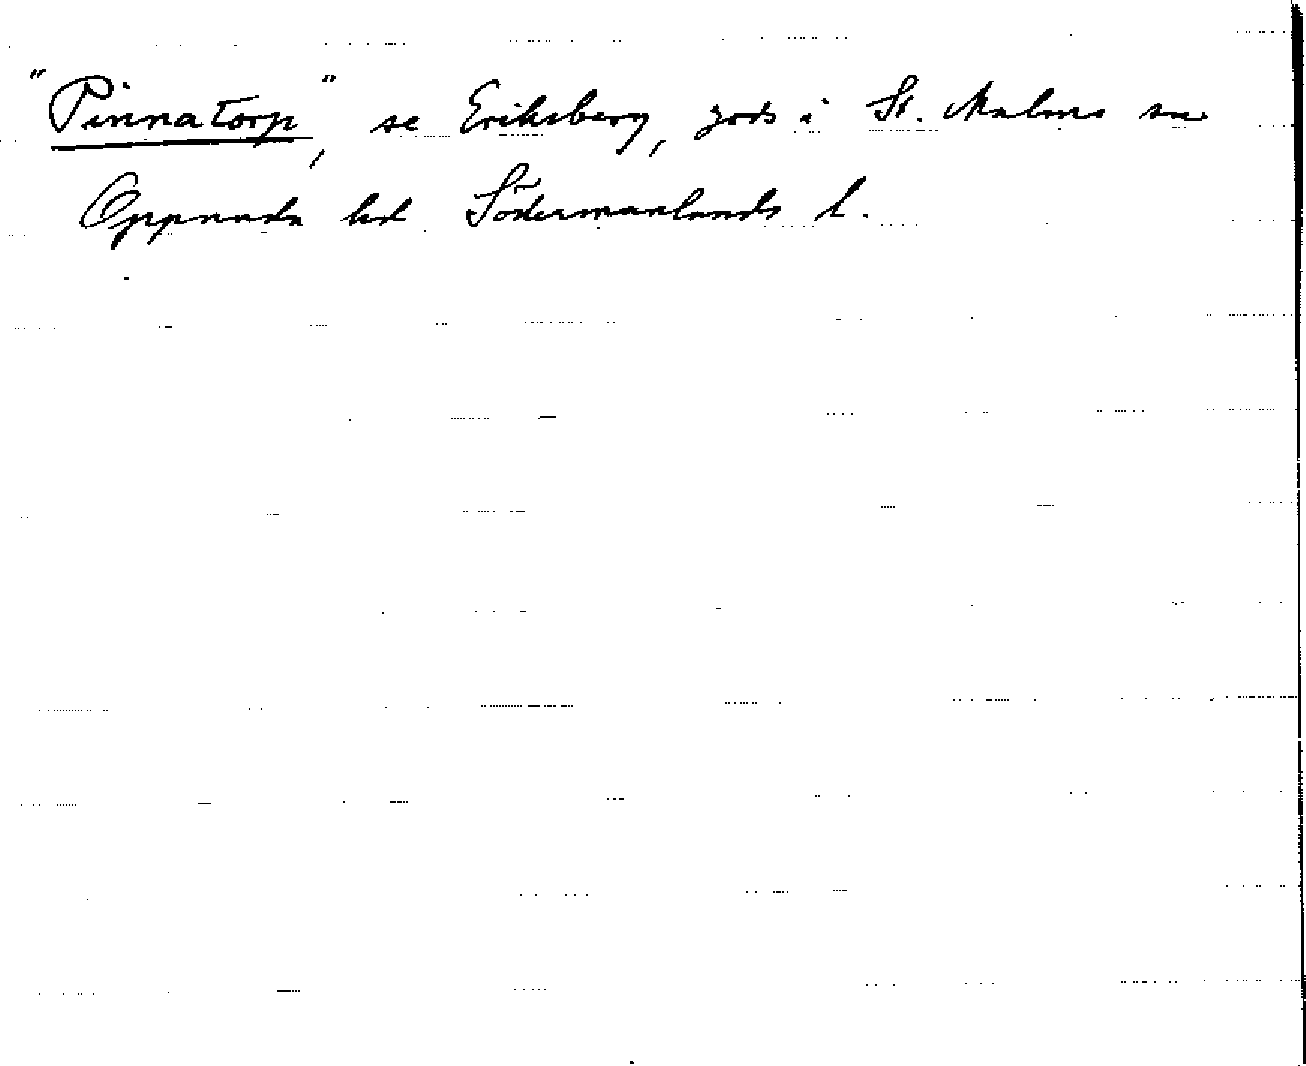 "Pinnatorp", se Eriksberg, gods i St. Malms sn
Oppunda hd Södermanlands l.